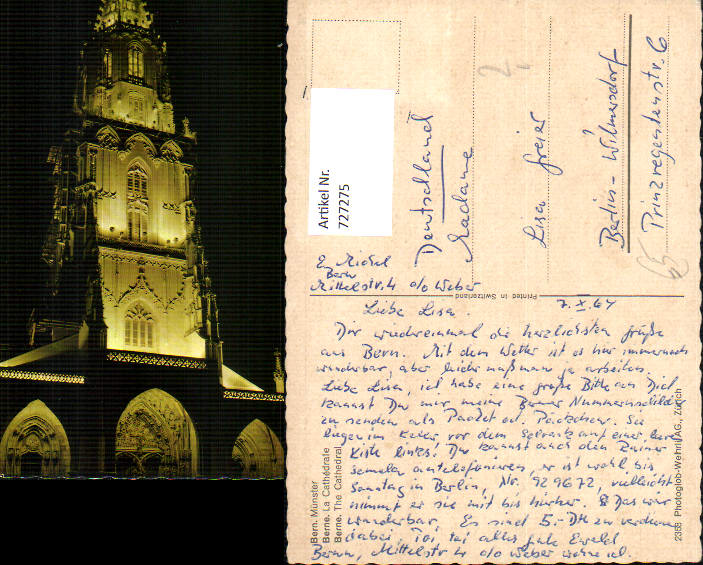 Artikel Nr.
727275
Deutschland
Madame
Lisa Freier
Berlin - Wilmersdorf
Prinzregentenstr. 6
65
E. Michel
Bern
Mittelstr. 4 c/o Weber
Printed in Switzerland
7. X. 64
Liebe Lisa.
Dir wiedereinmal die herzlichsten Grüße
aus Bern. Mit dem Wetter ist es hier immernoch
wunderbar, aber leider muß man ja arbeiten.
Liebe Lisa, ich habe eine große Bitte an Dich
kannst Du mir meine Berner Nummernschilder
zu senden als Packet od. Päckchen. Sie
liegen im Keller vor dem auf einer
Kiste links! Du kannst auch den Rainer
antelefonieren, er ist wohl bis
Sonntag in Berlin, Nr. 929672, vielleicht
nimmt er sie mit bis hierher. Das wär
wunderbar. Es sind 5.- DM zu verdienen
dabei. alles gute Ewald
Bern, Mittelstr 4 c/o Weber
Bern. Münster
Berne. La Cathédrale
Berne. The Cathedral
2353 Photoglob-Wehrli AG., Zürich